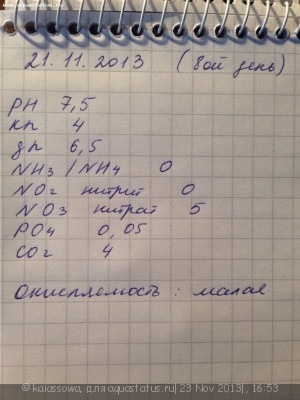 www.aquastatus.ru
21.11.2013 (8ой день)
PH 7,5
кп 4
gп 6,5
NH3 / NH4 0
NO2 нитрит 0
NO3 нитрат 5
PO4 0,05
CO2 4
Окисляемость : малая
© kaiassowa, для aquastatus.ru| 23 Nov 2013|, 16:53